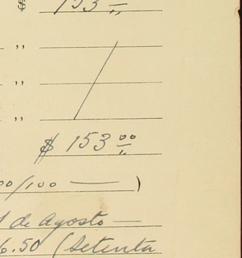 $ 153 "
"
"
"
$ 153 00
00/100 —— )
de agosto —
6.50 (Setenta